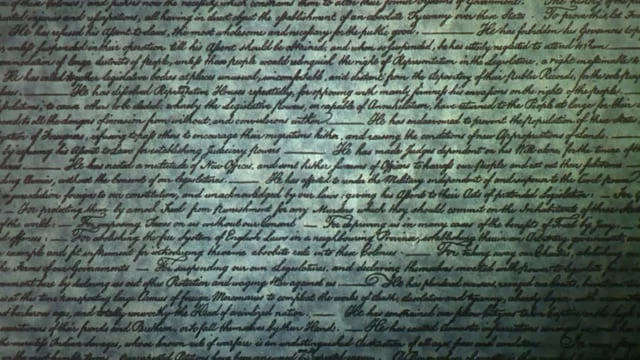 of these Colonies; and such is now the necessity which constrains them to alter their former Systems of Government. The history of
injuries and usurpations, all having in direct object the establishment of an absolute Tyranny over these States. To prove this let
He has refused his Assent to Laws, the most wholesome and necessary for the public good. He has forbidden his Governors to
unless suspended in their operation till his Assent should be obtained; and when so suspended, he has utterly neglected to attend to them.
modation of large districts of people, unless those people would relinquish the right of Representation in the Legislature, a right inestimable to
He has called together legislative bodies at places unusual, uncomfortable, and distant from the depository of their Public Records, for the sole
He has dissolved Representative Houses repeatedly, for opposing with manly firmness his invasions on the rights of the people.
to cause others to be elected; whereby the Legislative powers, incapable of Annihilation, have returned to the People at large for their
to all the dangers of invasion from without, and convulsions within. He has endeavoured to prevent the population of these
of Foreigners; refusing to pass others to encourage their migrations hither, and raising the conditions of new Appropriations of Lands.
his Assent to Laws for establishing Judiciary powers. He has made Judges dependent on his Will alone, for the tenure of
He has erected a multitude of New Offices, and sent hither swarms of Officers to harrass our people, and eat out their substance.
Armies, without the Consent of our legislatures. He has affected to render the Military independent of and superior to the Civil power.
jurisdiction foreign to our constitution, and unacknowledged by our laws; giving his Assent to their Acts of pretended Legislation:
For protecting them, by a mock Trial, from punishment for any Murders which they should commit on the Inhabitants of these
of the world: For imposing Taxes on us without our Consent: For depriving us in many cases, of the benefits of Trial by Jury:
offences: For abolishing the free System of English Laws in a neighbouring Province, establishing therein an Arbitrary government,
example and fit instrument for introducing the same absolute rule into these Colonies: For taking away our Charters,
the Forms of our Governments: For suspending our own Legislatures, and declaring themselves invested with power to legislate
here, by declaring us out of his Protection and waging War against us. He has plundered our seas, ravaged our Coasts,
at this time transporting large Armies of foreign Mercenaries to compleat the works of death, desolation and tyranny, already
barbarous ages, and totally unworthy the Head of a civilized nation. He has constrained our fellow Citizens taken Captive on the high
executioners of their friends and Brethren, or to fall themselves by their Hands. He has excited domestic insurrections
the merciless Indian Savages, whose known rule of warfare, is an undistinguished destruction of all ages, sexes and conditions. In